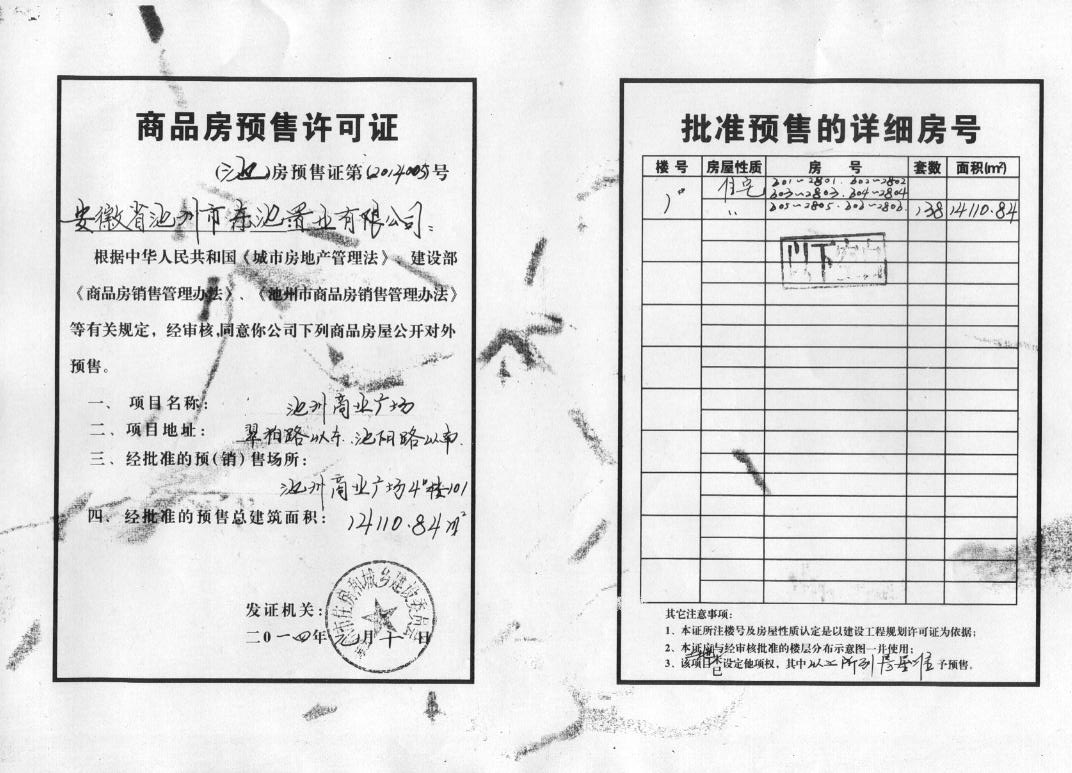 商品房预售许可证
(池)房预售证第(2014005)号
安徽省池州市东池置业有限公司:
根据中华人民共和国《城市房地产管理法》、建设部
《商品房销售管理办法》、《池州市商品房销售管理办法》
等有关规定,经审核,同意你公司下列商品房屋公开对外
预售。
一、项目名称: 池州商业广场
二、项目地址: 翠柏路以东、池阳路以南
三、经批准的预(销)售场所:
池州商业广场4#楼101
四、经批准的预售总建筑面积: 14110.84㎡
市住房和城乡建设委员会
发证机关:
二0一四年元月十一日
批准预售的详细房号
楼号 房屋性质 房号 套数 面积(㎡)
1# 住宅 301~2801. 302~2802
303~2803. 304~2804
〃 305~2805. 306~2806. 138 14110.84
以下
其它注意事项:
1、本证所注楼号及房屋性质认定是以建设工程规划许可证为依据;
2、本证应与经审核批准的楼层分布示意图一并使用;
3、该项目 设定他项权,其中以上所列房屋准予预售。